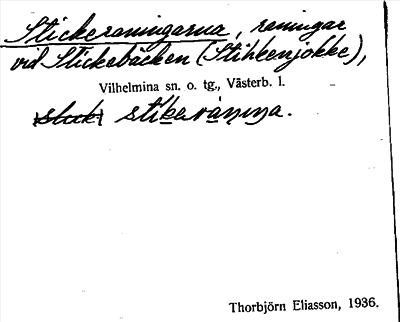 Stickeraningarna, raningar
vid Stickebäcken (Stihkenjokke),
Vilhelmina sn. o. tg., Västerb. l.
stikeránıŋa.
Thorbjörn Eliasson, 1936.